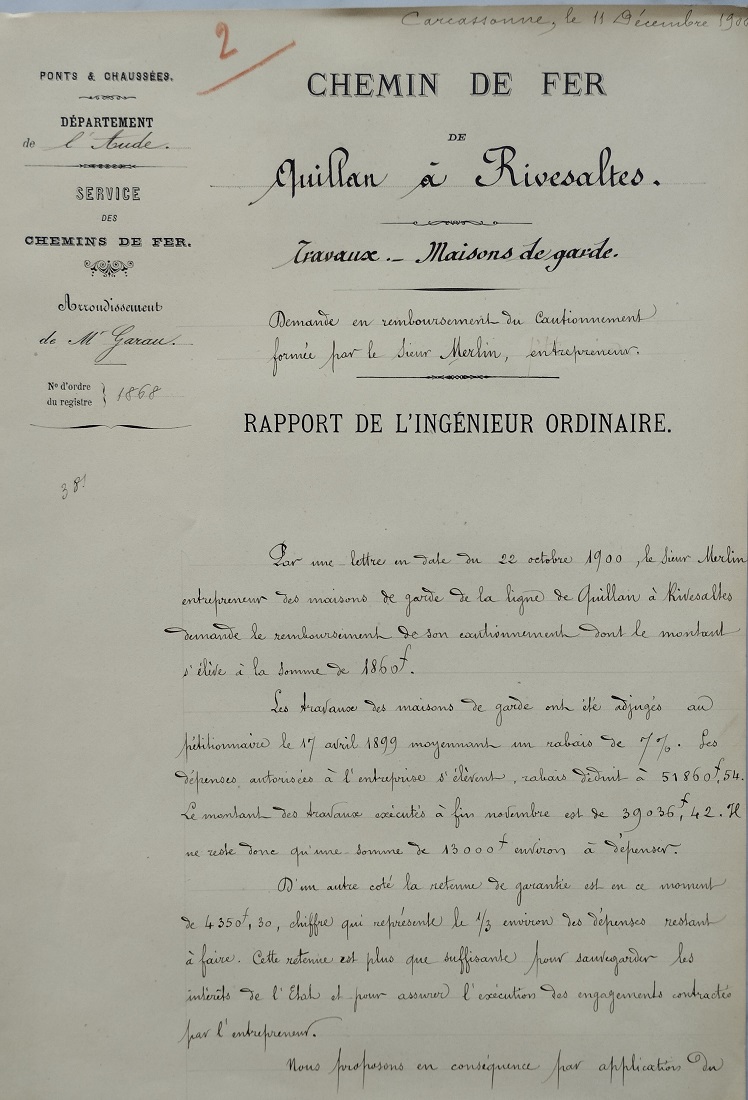 Carcassonne, le 11 Décembre 1900
2
PONTS & CHAUSSÉES.
DÉPARTEMENT
de l'Aude.
SERVICE
DES
CHEMINS DE FER.
Arrondissement
de Mr Garau.
N° d'ordre
du registre } 1868
381
CHEMIN DE FER
DE
Quillan à Rivesaltes.
Travaux. - Maisons de garde.
Demande en remboursement du Cautionnement
formée par le Sieur Merlin, entrepreneur.
RAPPORT DE L'INGÉNIEUR ORDINAIRE.
Par une lettre en date du 22 octobre 1900, le sieur Merlin
entrepreneur des maisons de garde de la ligne de Quillan à Rivesaltes
demande le remboursement de son cautionnement dont le montant
s'élève à la somme de 1860f.
Les travaux des maisons de garde ont été adjugés au
pétitionnaire le 17 avril 1899 moyennant un rabais de 7%. Les
dépenses autorisées à l'entreprise s'élèvent, rabais déduit à 51860f,54.
Le montant des travaux exécutés à fin novembre est de 39036f,42. Il
ne reste donc qu'une somme de 13000f environ à dépenser.
D'un autre coté la retenue de garantie est en ce moment
de 4350f,30, chiffre qui représente le 1/3 environ des dépenses restant
à faire. Cette retenue est plus que suffisante pour sauvegarder les
intérêts de l'Etat et pour assurer l'exécution des engagements contractés
par l'entrepreneur.
Nous proposons en conséquence par application du